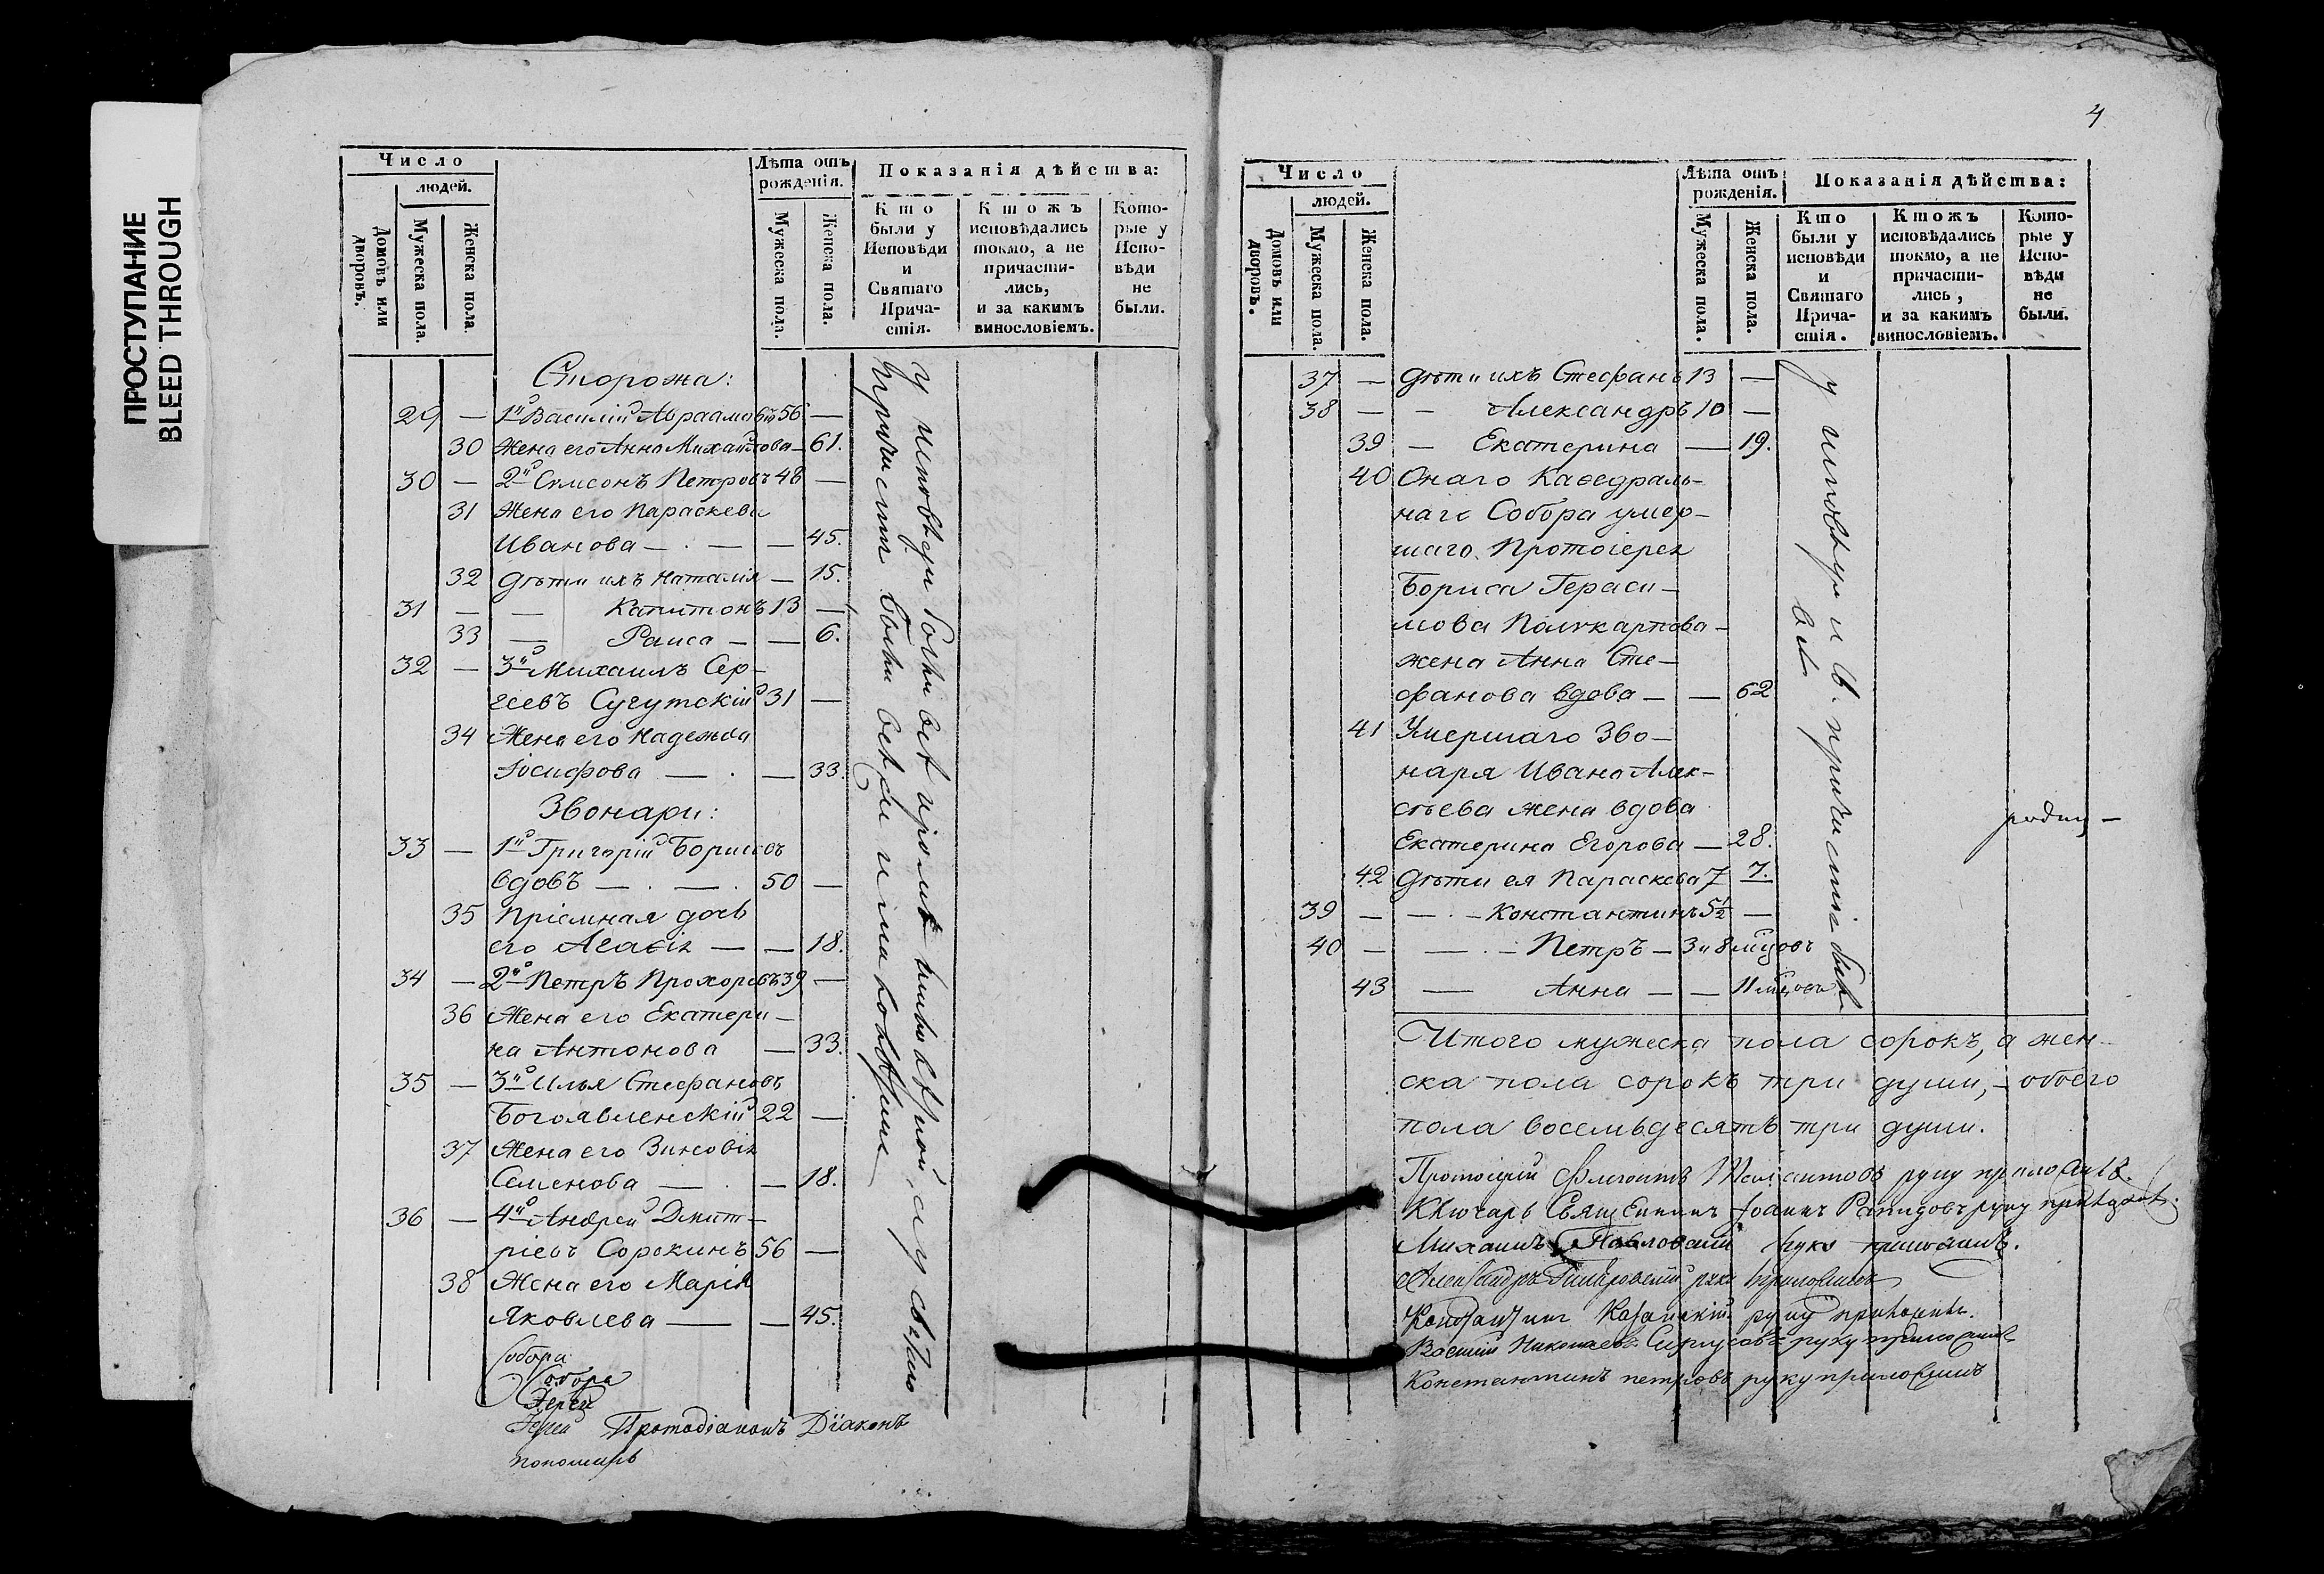 ПРОСТУПАНИЕ
BLEED THROUGH
Число
людей.
Домовъ или дворовъ.
Мужеска пола.
Женска пола.
Лѣта отъ рожденія.
Мужеска пола.
Женска пола.
Показанія дѣйства:
Кто были у Исповѣди и Святаго Прича-стія.
Ктожъ исповѣдались токмо, а не причасти-лись, и за какимъ винословіемъ.
Кото-рые у Испо-вѣди не были.
Сторожа:
29 — 1й Василій Авраамовъ 56 —
30 Жена его Анна Михайлова — 61.
30 — 2й Симеонъ Петровъ 48 —
31 Жена его Параскева
Иванова — . — — 45.
32 Дѣти ихъ Наталія — 15.
31 — — Капитонъ 13 —
33 — Раиса — — 6.
32 — 3й Михаилъ Сер-
геевъ Сугутскій 31 —
34 Жена его Надежда
Іосифова — . — 33.
Звонари:
33 — 1й Григорій Борисовъ
вдовъ — . — . 50 —
35 Пріемная дочь
его Агафія — — 18.
34 — 2й Петръ Прохоровъ 39 —
36 Жена его Екатери-
на Антонова — 33.
35 — 3й Илья Стефановъ
Богоявленскій 22 —
37 Жена его Зиновія
Семенова — . — 18.
36 — 4й Андрей Дмит-
ріевъ Сорокинъ 56 —
38 Жена его Марія
Яковлева — — 45.
у исповѣди были всѣ кромѣ
причастія были всѣ
Собора
Собора
Іерей
Іерей Протодіаконъ Діаконъ
пономарь
4
Число
людей.
Домовъ или дворовъ.
Мужеска пола.
Женска пола.
Лѣта отъ рожденія.
Мужеска пола.
Женска пола.
Показанія дѣйства:
Кто были у исповѣди и Святаго Прича-стія.
Ктожъ исповѣдались токмо, а не причасти-лись, и за какимъ винословіемъ.
Кото-рые у Испо-вѣди не были.
37 — Дѣти ихъ Стефанъ 13 —
38 — — Александръ 10 —
39 — Екатерина — 19.
40 Онаго Каѳедраль-
наго Собора умер-
шаго Протоіерея
Бориса Гераси-
мова Поликарпова-
жена Анна Сте-
фанова вдова — — 62
41 Умершаго Зво-
наря Ивана Алек-
сѣева жена вдова
Екатерина Егорова — 28.
42 Дѣти ея Параскева 7 7.
39 — — . — Константинъ 5½ —
40 — — . — Петръ — 3 и 8 мцовъ
43 — Анна — — 11 мцовъ
у исповѣди и св. причастія были
всѣ
Итого мужеска пола сорокъ, а жен-
ска пола сорокъ три души, — обоего
пола восемьдесятъ три души.
Протоіерей руку приложилъ.
Ключарь Священникъ Іоаннъ руку приложилъ.
Михаилъ Павловскій руку приложилъ.
Александръ руку приложилъ
Константинъ Казанскій руку приложилъ.
Василій Николаевъ руку приложилъ
Константинъ петровъ руку приложилъ